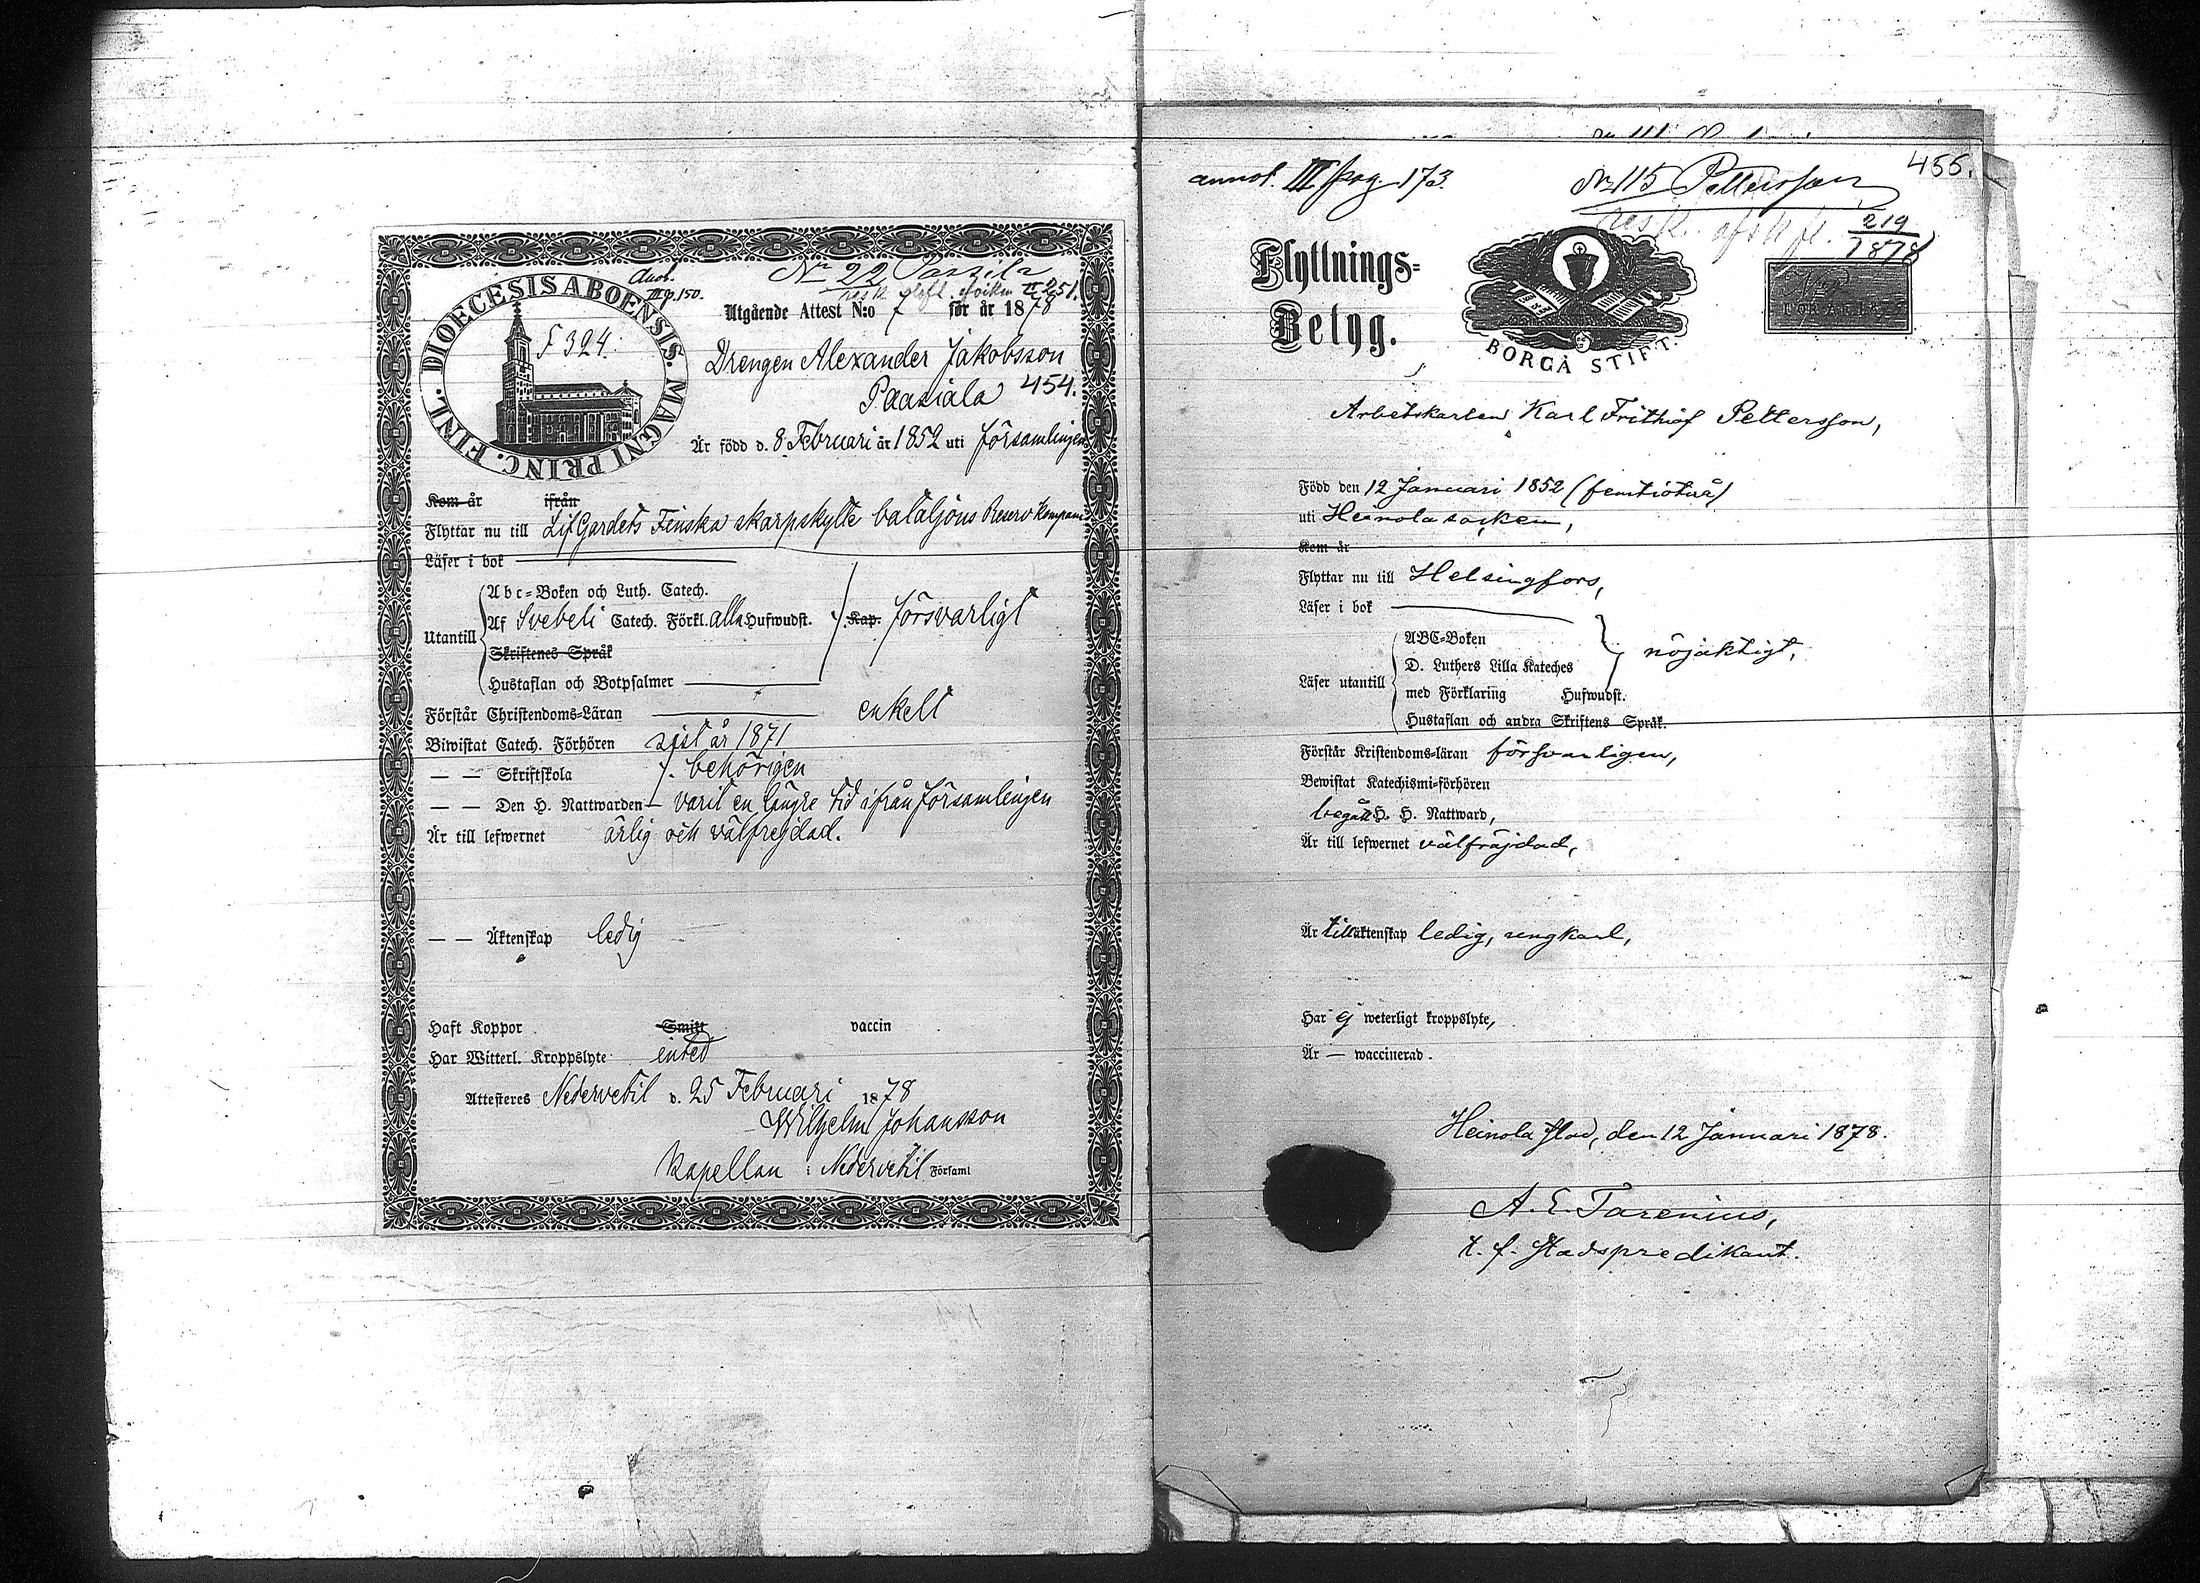 Anot.
III p. 150.
No 22 Passila
II 251.
DIOECESIS ABOENSIS. MAGNI PRINC. FINL.
F 324.
Utgående Attest N:o 7 för år 1878
Drengen Alexander Jakobsson
Paasiala 454.
Är född d. 8 Februari år 1852 uti församlingen
Kom år ifrån
Flyttar nu till Lif Gardets Finska skarpskytte bataljons Reserv Kompani
Läser i bok
Utantill
Abc-Boken och Luth. Catech.
Af Svebeli Catech. Förkl. alla Hufwudst. Kap. försvarligt
Skriftenes Språk
Hustaflan och Botpsalmer
Förstår Christendoms-Läran enkelt
Biwistat Catech. Förhören sist år 1871
— — Skriftskola behörigen
— — Den H. Nattwarden — varit en längre tid ifrån församlingen
Är till lefwernet ärlig och välfrejdad.
— — Äktenskap ledig
Haft Koppor Smitt vaccin
Har Witterl. Kroppslyte intet
Attesteres Nedervetil d. 25 Februari 1878
Wilhelm Johansson
Kapellan i Nedervetil Församl
annot. III pag. 173.
No 115 Pettersson
455.
219
1878
Flyttnings-
Betyg.
BORGÅ STIFT.
Arbetskarlen Karl Frithiof Pettersson,
Född den 12 Januari 1852 (femtiotvå)
uti Heinola socken,
Kom år
Flyttar nu till Helsingfors,
Läser i bok
Läser utantill
ABC-Boken
D. Luthers Lilla Kateches
med Förklaring Hufwudst.
Hustaflan och andra Skriftens Språk.
nöjaktigt,
Förstår Kristendoms-läran försvarligen,
Bewistat Katechismi-förhören
begått H. H. Nattward,
Är till lefwernet välfräjdad,
Är till äktenskap ledig, ungkarl,
Har ej weterligt kroppslyte,
Är — waccinerad.
Heinola stad, den 12 Januari 1878.
A. E. Tarenius,
t. f. Stadspredikant.